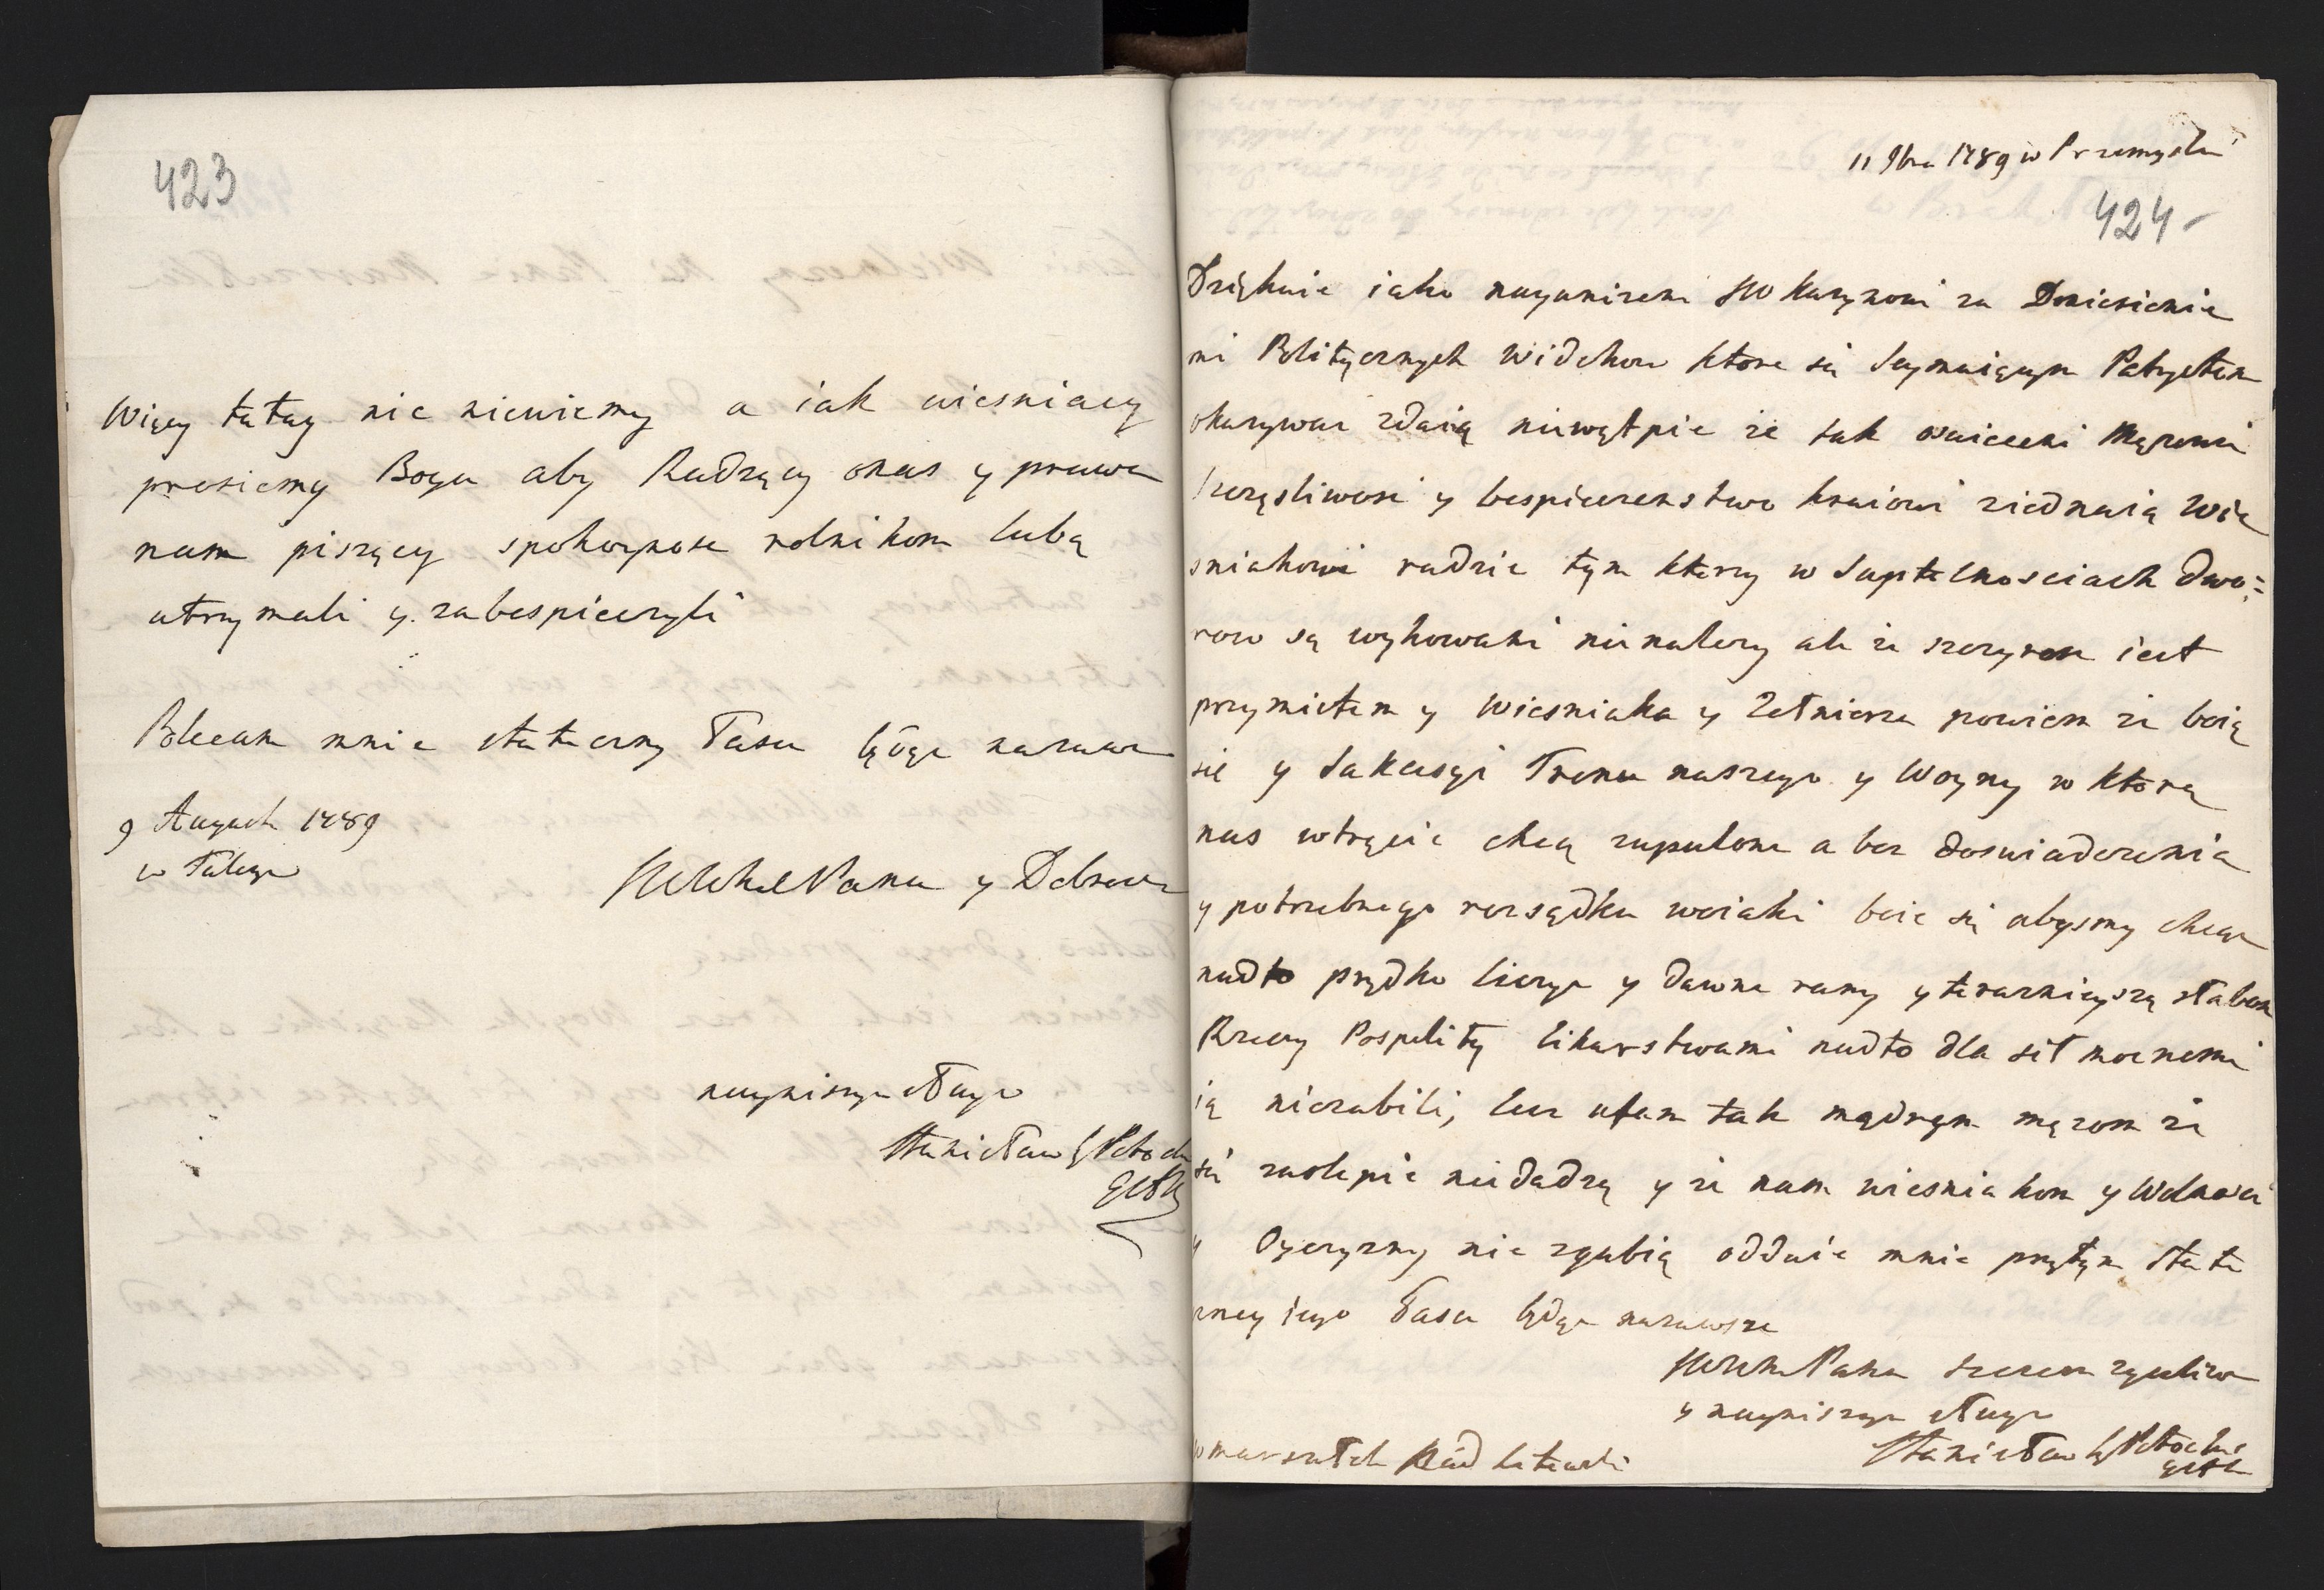 423
Więcy tutay nic niewiemy a iak wiesniacy
prosiemy Boga aby Radzący onas y prawa
nam piszący spokoynose rolnikom lubą
utrzymali y zabespieczyli
Polecam mnie stateczny Łasce będąc nazawsze
9 Augusti 1789
w
y Dobrodzieia
nayniszym sługą
Stanisław Potocki
11 9bra 1789 w Przemyslu
424
Dziękuie iako nayunizeni za Doniesienie
mi Politycznych Widokow ktore się Seymuiącym Patryotom
okazywac zdaią niewątpie ze tak swiatli Mężowie
szczęsliwosc y bespieczenstwo kraiowi ziednaią Wie
sniakowi radzic tym ktorzy w Suptelnosciach dwo=
row są wychowani nienalezy ale ze szczyrosc iest
przymiotem y Wiesniaka y Zołnierza powiem ze boię
się y Sukcesyi Tronu naszego y Woyny w ktorą
nas wtrącic chcą zapalone a bez doswiadczenia
y potrzebnego rozsądku woiaki boie się abysmy chcąc
nadto prędko liczyc y dawne rany y terazniejszą słabosc
Rzeczy Pospolity likarstwami nadto dla sił mocnemi
ią niezabili, lecz ufam tak mądrym mężom ze
się zaslepic niedadzą y ze nam wiesniakom y Wolnosci
y Oyczyzny nie zgubią oddaie mnie przytym state
czney iego Łasce będąc nazawsze
szczerze zyczliwym
y nayniszym sługą
Stanisław Potocki
marszałek Litewski